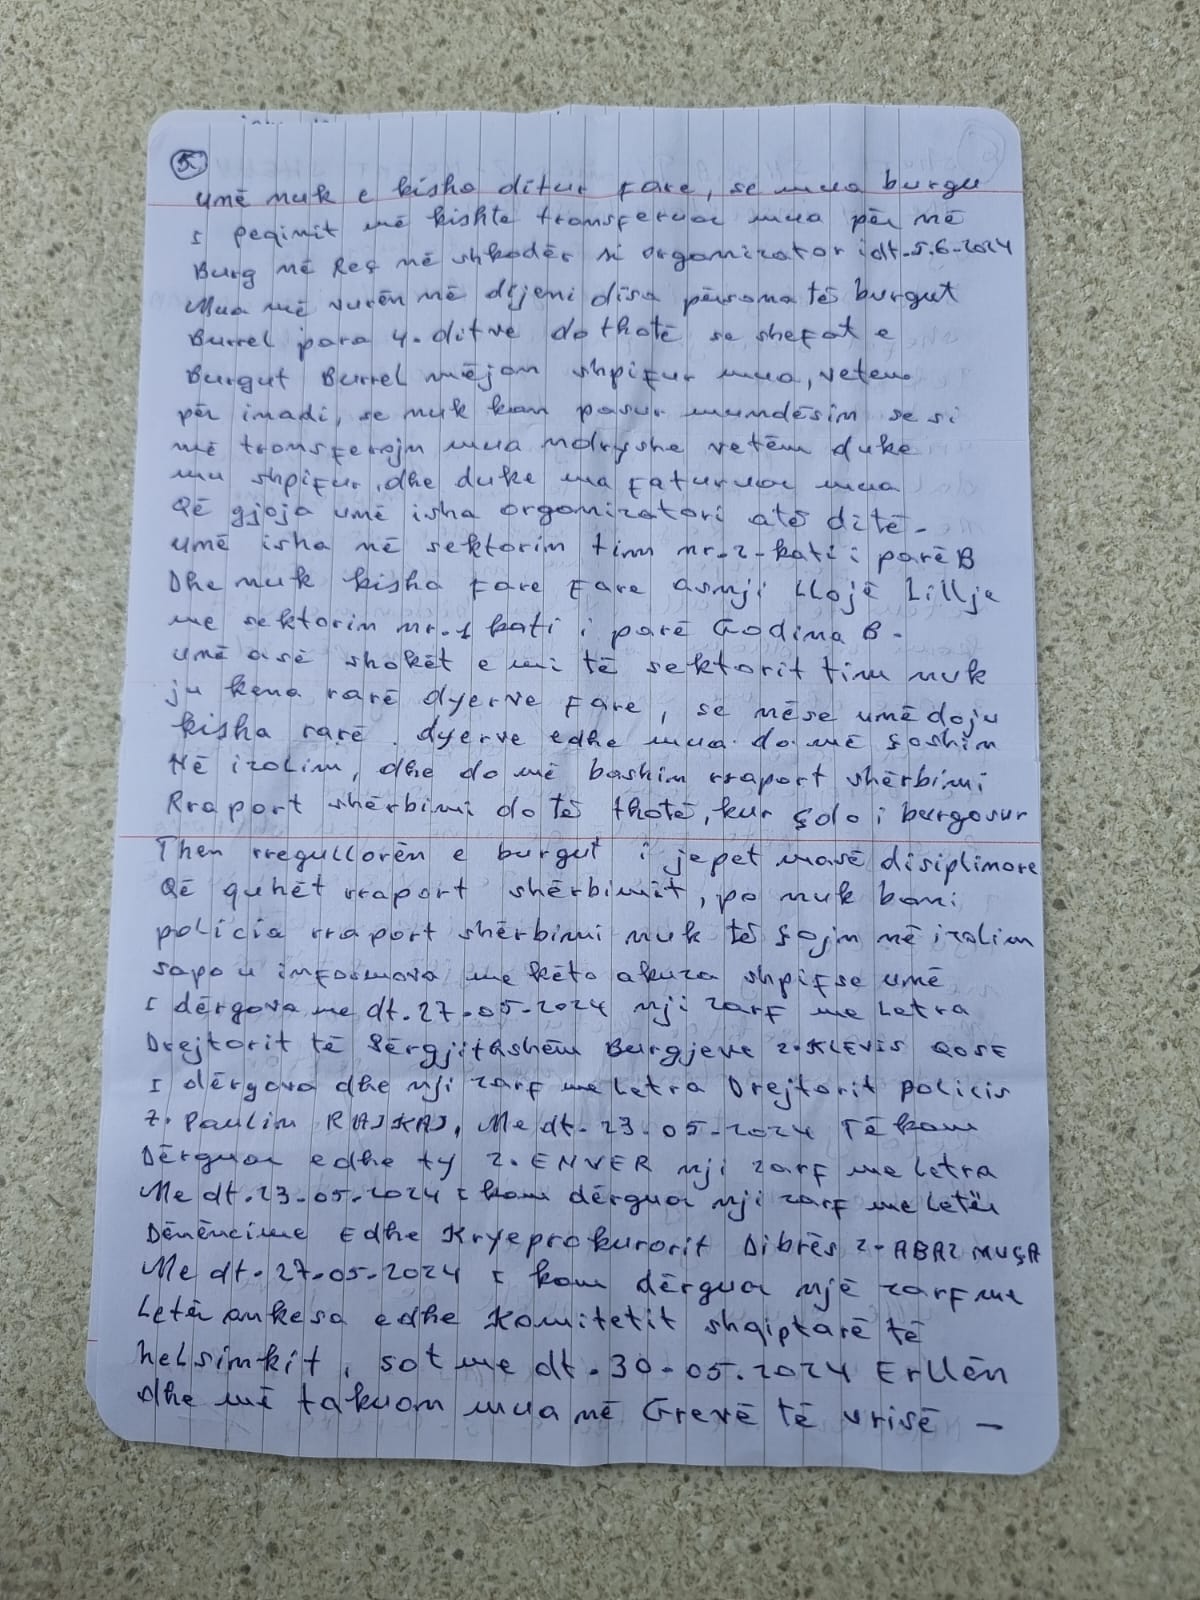 5.
umē nuk e kisha ditur fare, se mua burgu
i peqinit mē kishte transferuar mua pēr nē
Burg nē Reç nē shkodēr si organizator i dt.5.6-2024
Mua mē vurēn nē dijeni disa pērsona tē burgut
Burrel para 4. ditve do thotē se shefat e
Burgut Burrel mējan shpifur mua, vetem
pēr inadi, se nuk kan pasur mundēsim se si
mē transferojn mua ndryshe vetēm duke
mu shpifur, dhe duke ma faturuar mua
Qē gjoja umē isha organizatori atē ditē.
umē isha nē sektorin tim nr.2-kati i parē B
Dhe nuk kisha fare fare asnji llojē lillje
me sektorin nr.1 kati i parē Godina B.
umē asē shokēt e mi tē sektorit tim nuk
ju kena rarē dyerve fare, se nēse umē doju
kisha rarē dyerve edhe mua do mē çoshin
Nē izolim, dhe do mē bashin rraport shērbimi
Rraport shērbimi do tē thotē, kur çdo i burgosur
Then rregullorēn e burgut i jepet masē disiplimore
Qē quhēt rraport shērbimit, po nuk bani
policia rraport shērbimi nuk tē çojn nē izolim
sapo u informova me kēto akuza shpifse umē
i dērgova me dt.27.05-2024 nji zarf me Letra
Drejtorit tē Pērgjithshēm Burgjeve z.KLEVIS QOSE
i dērgova dhe nji zarf me Letra Drejtorit policis
z. Paulin RAJKAJ, Me dt.23.05-2024 Tē kam
Dērguar edhe ty z.ENVER nji zarf me Letra
Me dt.23-05-2024 i kam dērguar nji zarf me Letēr
Dēnēncime Edhe Kryeprokurorit Dibrēs z.ABAZ MUÇA
Me dt.27-05-2024 i kam dērguar njē zarf me
Letēr ankesa edhe Komitetit shqiptarē tē
helsinkit, sot me dt.30-05.2024 Erdhēn
dhe mē takuan mua nē Grevē tē Urisē –